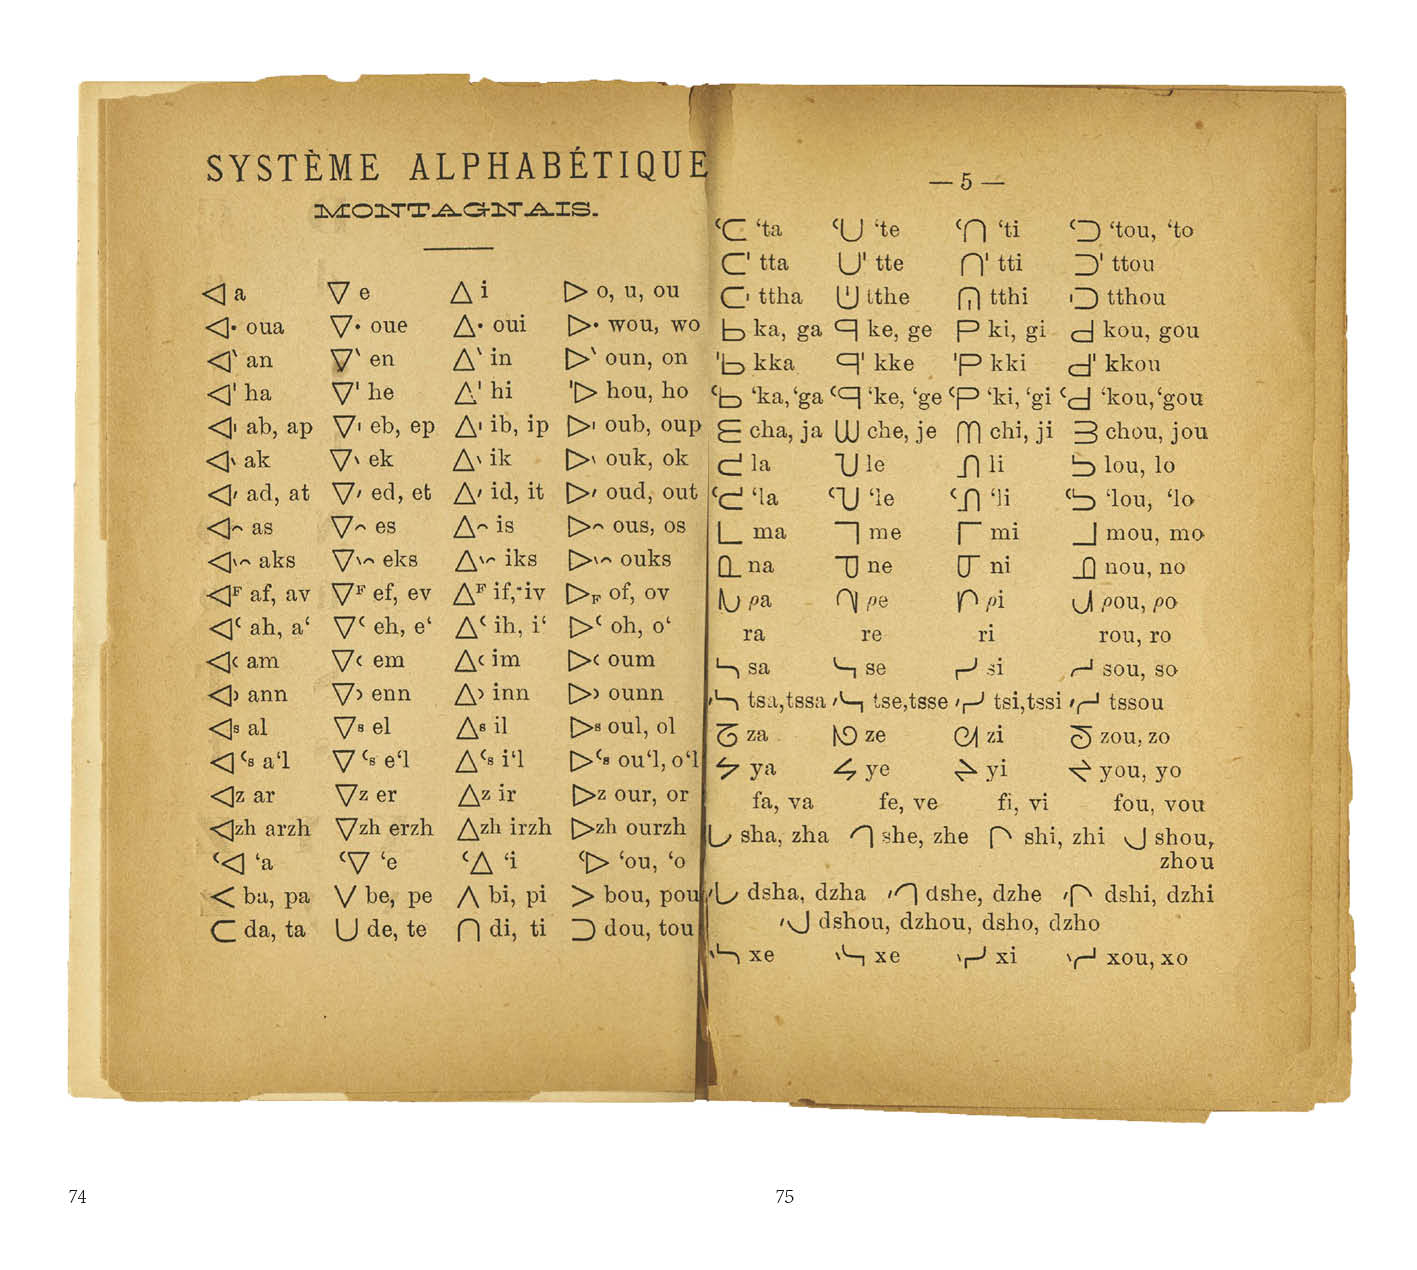 SYSTÈME ALPHABÉTIQUE
MONTAGNAIS.
ᐊ a ᐁ e ᐃ i ᐅ o, u, ou
ᐊ• oua ᐁ• oue ᐃ• oui ᐅ• wou, wo
ᐊ‵ an ᐁ‵ en ᐃ‵ in ᐅ‵ oun, on
ᐊ' ha ᐁ' he ᐃ' hi 'ᐅ hou, ho
ᐊᑊ ab, ap ᐁᑊ eb, ep ᐃᑊ ib, ip ᐅᑊ oub, oup
ᐊᐠ ak ᐁᐠ ek ᐃᐠ ik ᐅᐠ ouk, ok
ᐊᐟ ad, at ᐁᐟ ed, et ᐃᐟ id, it ᐅᐟ oud, out
ᐊᐢ as ᐁᐢ es ᐃᐢ is ᐅᐢ ous, os
ᐊᐠᐢ aks ᐁᐠᐢ eks ᐃᐠᐢ iks ᐅᐠᐢ ouks
ᐊF af, av ᐁF ef, ev ᐃF if, iv ᐅF of, ov
ᐊʿ ah, a‘ ᐁʿ eh, e‘ ᐃʿ ih, i‘ ᐅʿ oh, o‘
ᐊᑦ am ᐁᑦ em ᐃᑦ im ᐅᑦ oum
ᐊᐣ ann ᐁᐣ enn ᐃᐣ inn ᐅᐣ ounn
ᐊs al ᐁs el ᐃs il ᐅs oul, ol
ᐊʿs a‘l ᐁʿs e‘l ᐃʿs i‘l ᐅʿs ou‘l, o‘l
ᐊz ar ᐁz er ᐃz ir ᐅz our, or
ᐊzh arzh ᐁzh erzh ᐃzh irzh ᐅzh ourzh
ʿᐊ ‘a ʿᐁ ‘e ʿᐃ ‘i ʿᐅ ‘ou, ‘o
ᐸ ba, pa ᐯ be, pe ᐱ bi, pi ᐳ bou, pou
ᑕ da, ta ᑌ de, te ᑎ di, ti ᑐ dou, tou
— 5 —
ʿᑕ ‘ta ʿᑌ ‘te ʿᑎ ‘ti ʿᑐ ‘tou, ‘to
ᑕ' tta ᑌ' tte ᑎ' tti ᑐ' ttou
ᑕᑊ ttha ᑧ tthe ᑨ tthi ᑊᑐ tthou
ᑲ ka, ga ᑫ ke, ge ᑭ ki, gi ᑯ kou, gou
'ᑲ kka ᑫ' kke 'ᑭ kki ᑯ' kkou
ʿᑲ ‘ka, ‘ga ʿᑫ ‘ke, ‘ge ʿᑭ ‘ki, ‘gi ʿᑯ ‘kou, ‘gou
ᗴ cha, ja ᗯ che, je ᗰ chi, ji ᗱ chou, jou
ᓚ la ᓓ le ᓕ li ᓗ lou, lo
ʿᓚ ‘la ʿᓓ ‘le ʿᓕ ‘li ʿᓗ ‘lou, ‘lo
ᒪ ma ᒣ me ᒥ mi ᒧ mou, mo
ᓇ na ᓀ ne ᓂ ni ᓄ nou, no
ᔭ ρa ᔦ ρe ᔨ ρi ᔪ ρou, ρo
ra re ri rou, ro
ᓴ sa ᓭ se ᓯ si ᓱ sou, so
ᐟᓴ tsa, tssa ᐟᓭ tse, tsse ᐟᓯ tsi, tssi ᐟᓱ tssou
za ze zi zou, zo
ᔕ ya ᔐ ye ᔑ yi ᔓ you, yo
fa, va fe, ve fi, vi fou, vou
ᒐ sha, zha ᒉ she, zhe ᒋ shi, zhi ᒍ shou,
zhou
ᐟᒐ dsha, dzha ᐟᒉ dshe, dzhe ᐟᒋ dshi, dzhi
ᐟᒍ dshou, dzhou, dsho, dzho
ᐠᓴ xe ᐠᓭ xe ᐠᓯ xi ᐠᓱ xou, xo
74
75